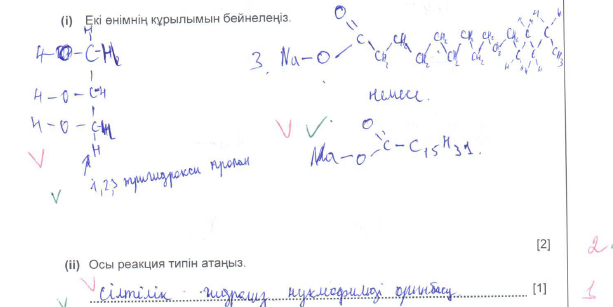 (i) Екі өнімнің құрылымын бейнелеңіз.
H
H-O-C-H
H-O-C-H
H-O-C-H
H
1,2,3 тригидрокси пропан
3. Na-O
O
C
CH2 CH2 CH2 CH2 CH2 CH2 CH2
немесе.
O
Na-O C-C15H31.
[2]
2
(ii) Осы реакция типін атаңыз.
сілтілік гидролиз нуклеофилді орынбасу [1]
1